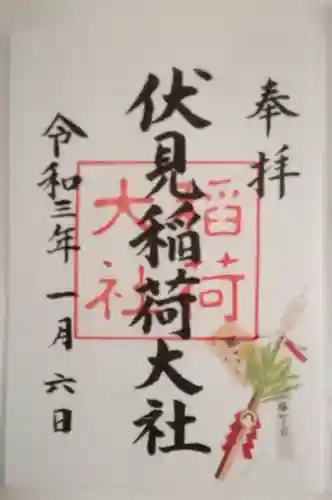 奉拝
伏見稲荷大社
稲荷
大社
令和三年 一月 六日